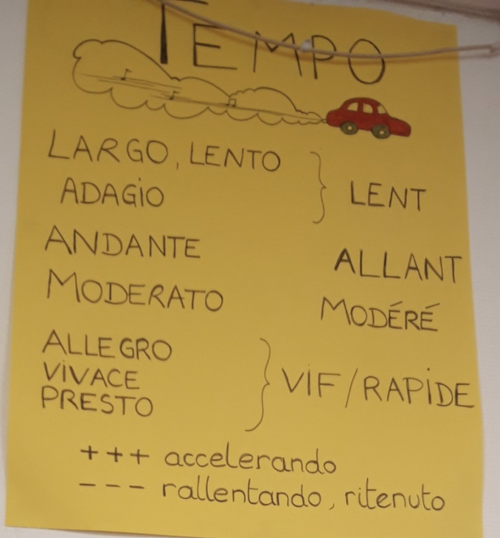 TEMPO
LARGO, LENTO
ADAGIO
LENT
ANDANTE
ALLANT
MODERATO
MODÉRÉ
ALLEGRO
VIVACE
PRESTO
VIF/RAPIDE
+++ accelerando
--- rallentando, ritenuto